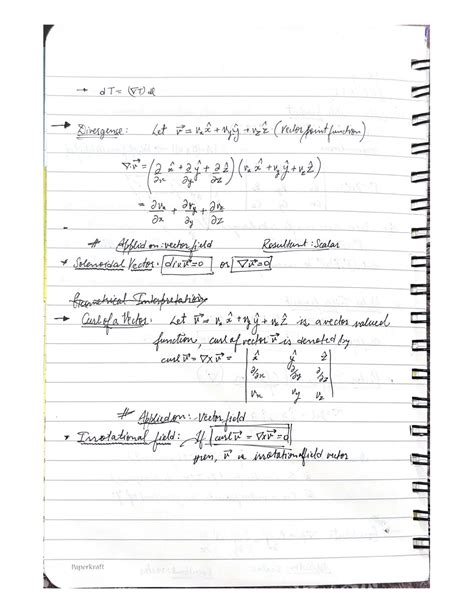 → dT = (∇T) dl
→ Divergence: Let v⃗ = vₓx̂ + v_yŷ + v_zẑ (vector point function)
∇·v⃗ = (∂/∂x x̂ + ∂/∂y ŷ + ∂/∂z ẑ) (vₓx̂ + v_yŷ + v_zẑ)
= ∂vₓ/∂x + ∂v_y/∂y + ∂v_z/∂z
# Applied on: vector field Resultant: Scalar
* Solenoidal Vector: div v⃗ = 0 or ∇·v⃗ = 0
Geometrical Interpretation
→ Curl of a Vector: Let v⃗ = vₓx̂ + v_yŷ + v_zẑ is a vector valued
function, curl of vector v⃗ is denoted by
curl v⃗ = ∇×v⃗ = | x̂ ŷ ẑ |
| ∂/∂x ∂/∂y ∂/∂z |
| vₓ v_y v_z |
# Applied on: Vector field
* Irrotational field: If curl v⃗ = ∇×v⃗ = 0
then, v⃗ is irrotational field vector
Paperkraft